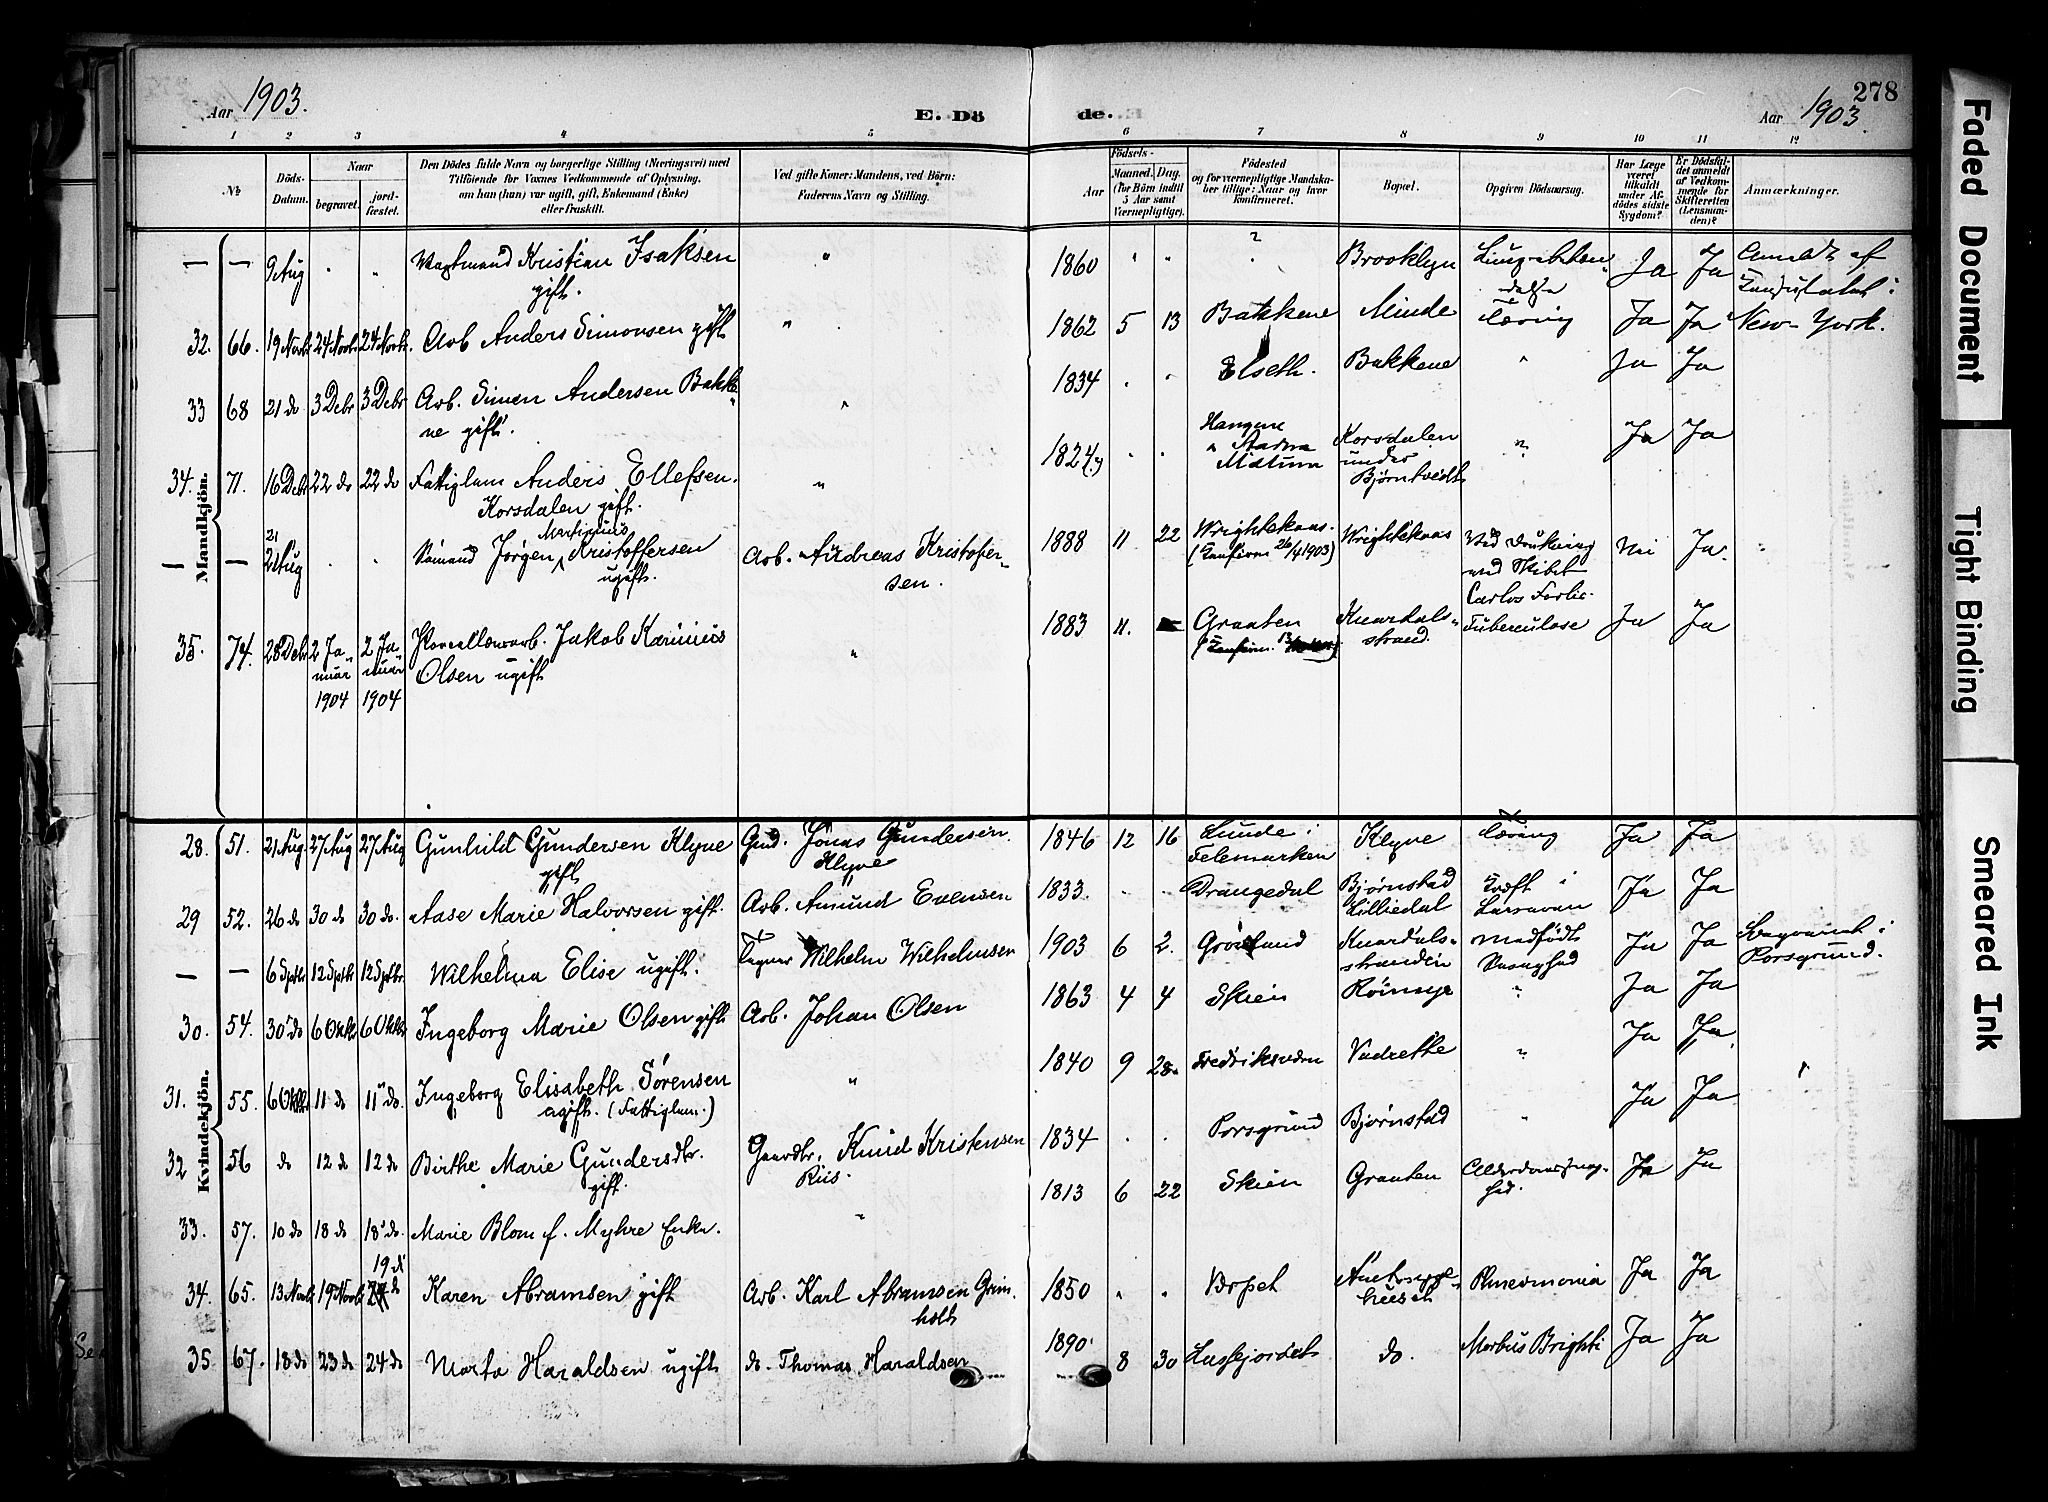 278
Aar 1903.
E. Döde.
Aar 1903.
1 2 3 4 5 6 7 8 9 10 11 12
No
Döds-Datum.
Naar
begravet.
jord-fæstet.
Den Dödes fulde Navn og borgerlige Stilling (Næringsvei) med
Tilföiende for Voxnes Vedkommende af Oplysning,
om han (hun) var ugift, gift, Enkemand (Enke)
eller fraskilt.
Ved gifte Koner: Mandens, ved Börn:
Faderens Navn og Stilling.
Födsels-
Aar
Maaned. Dag.
(for Börn indtil
5 Aar samt
Værnepligtige).
Födested
og for værnepligtige Mandska-
ber tillige: Naar og hvor
konfirmeret.
Bopæl.
Opgiven Dödsaarsag.
Har Læge
været
tilkaldt
under Af-
dödes sidste
Sygdom?
Er Dödsfal-
det anmeldt
af Vedkom-
mende for
Skifteretten
(Lensman-
den)?
Anmærkninger.
Mandkjön.
— — 9 Aug " " Kristian Isaksen " 1860 " " ? Brooklyn Ja Ja Anmeldt af
gift. Konsulatet i
32. 66. 19 Novbr 24 Novbr 24 Novbr. Arb Anders Simonsen gift " 1862 5 13 Bakkene Minde Tæring Ja Ja New-York.
33 68 21 do 3 Debr 3 Debr Arb. Simen Andersen Bakke- " 1834 . . Elseth. Bakkene " Ja Ja
ne gift.
34. 71. 16 Debr 22 do 22 do Fattiglem Anders Ellefsen. " 1824 . . Hangene Korsdalen " Ja Ja
Korsdalen gift. under
Bjørntvedt
— — 21 Aug . . Sømand Jørgen Martinius Kristoffersen Arb. Andreas Kristofer- 1888 11 22 Wrightekaas. Wrightekaas Ved Drukning Nei Ja.
ugift. sen. (Konfirm 26/4 1903) med Skibet
Carlos Forlis.
35. 74. 28 Debr 2 Ja- 2 Ja- Porcellænsarb. Jakob Karinius " 1883 11. Graaten Knardals- Tuberculose Ja Ja
nuar nuar Olsen ugift (Konfirm. strand.
1904 1904
Kvindekjön.
28. 51. 21 Aug 27 Aug 27 Aug Gunhild Gundersen Klyve Grd. Jonas Gundersen 1846 12 16 Lunde i Klyve Tæring Ja Ja
gift Klyve Telemarken
29 52. 26 do 30 do 30 do. Aase Marie Halvorsen gift. Arb. Amund Evensen 1833. . . Drangedal Bjørnstad Kræft i Ja Ja
Lilliedal
— — 6 Septbr 12 Septbr 12 Septbr Wilhelma Elise ugift. Wilhelm Wilhelmsen 1903 6 2. Grønland Knardals- Medfødt Ja Ja Begravet i
stranden Svaghed Porsgrund.
30. 54. 30 do 6 Oktbr 6 Oktbr Ingeborg Marie Olsen gift Arb. Johan Olsen 1863 4 4 Skien Rømyr " Ja Ja
31. 55. 6 Oktbr 11 do 11 do. Ingeborg Elisabeth Sørensen " 1840 9 28. Fredriksværn Vadrette " Ja Ja
ugift. (Fattiglem.)
32 56 do 12 do 12 do Birthe Marie Gundersdtr. Gaardbr. Knud Kristensen 1834 . . Porsgrund Bjørnstad " Ja Ja
gift. Riis.
33. 57. 10 do 18 do 18 do. Marie Blom f. Myhre Enke. " 1813 6 22 Skien Graaten Alderdomssvag- Ja Ja
hed.
19 do
34. 65. 13 Novbr 19 Novbr Karen Abramsen gift Arb. Karl Abramsen Grim- 1850 " . Pneumonia Ja Ja
holt
35 67. 18 do 23 do 24 do Marta Haraldsen ugift do. Thomas Haraldsen 1890 8 30 do. Morbus Brighti Ja Ja
Faded Document
Tight Binding
Smeared Ink